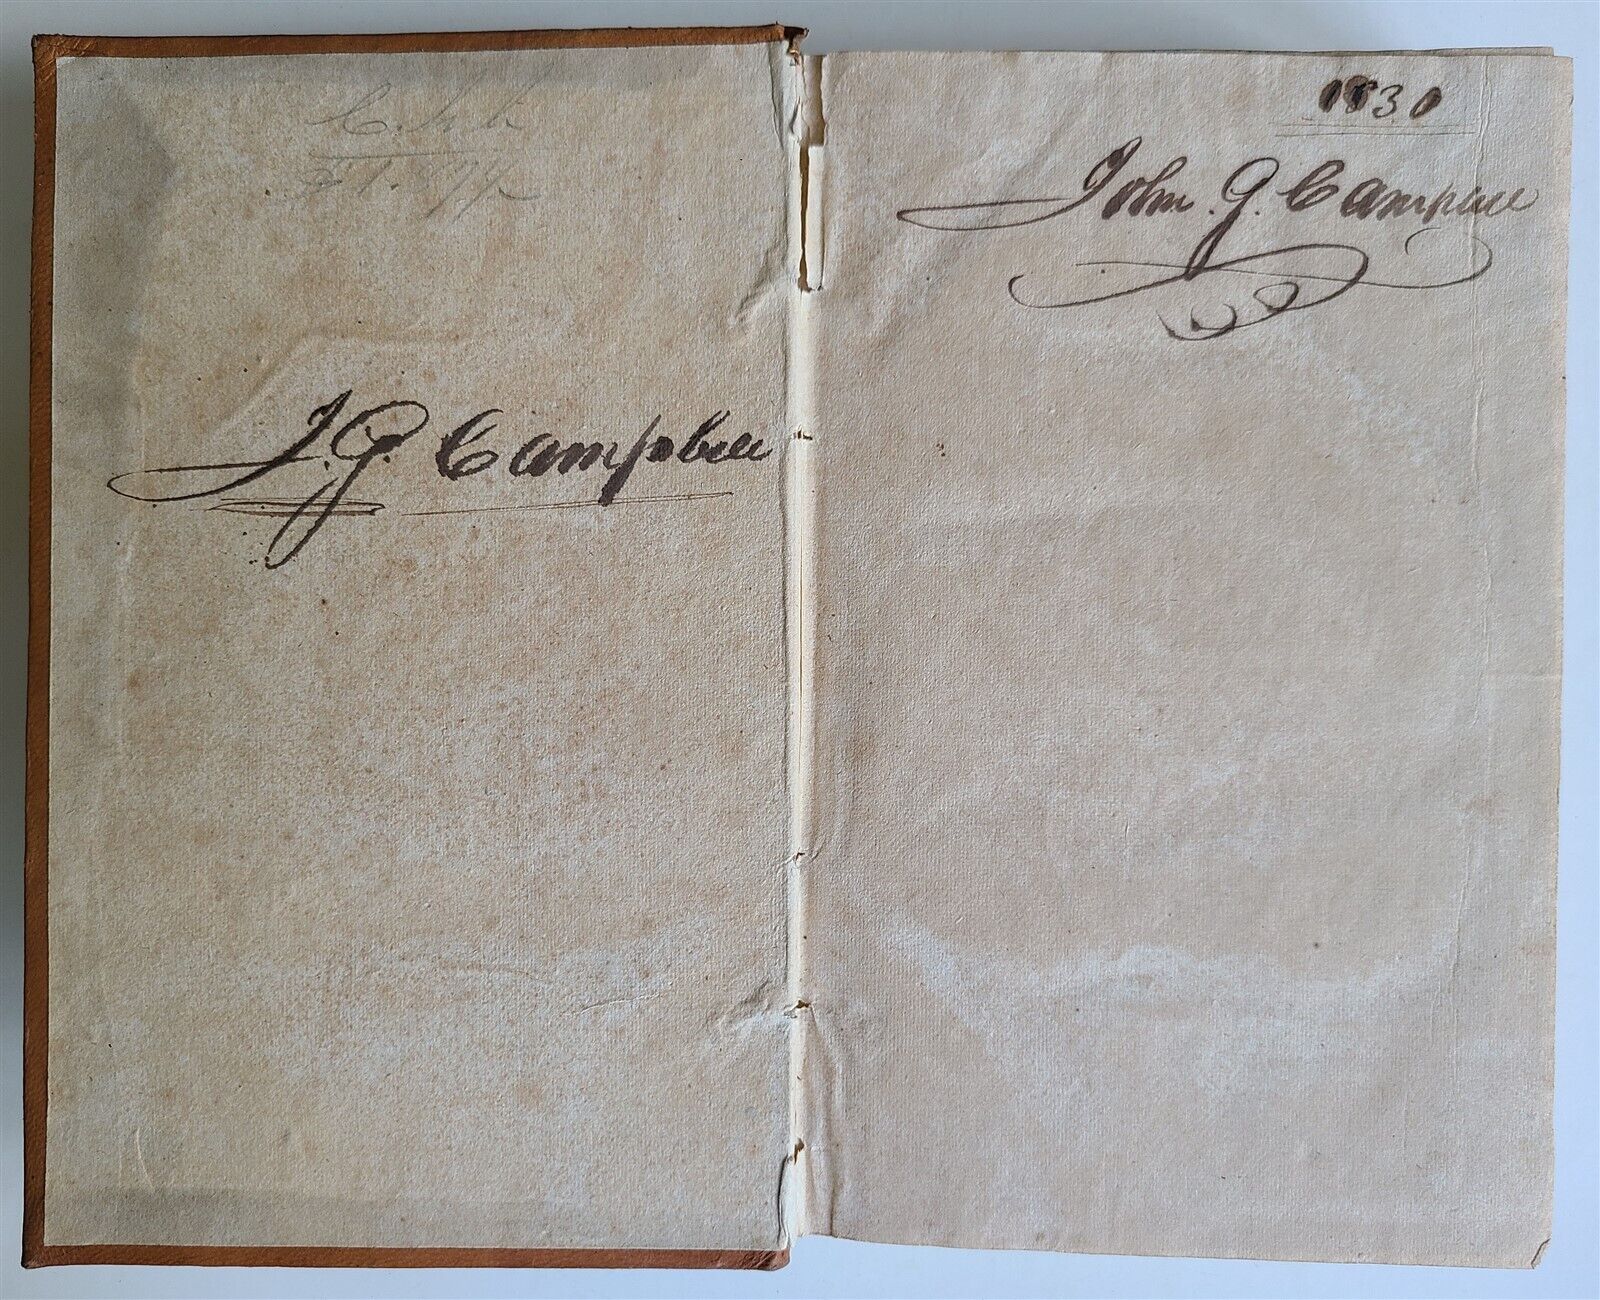 J. G. Campbell
1830
John. G. Campbell